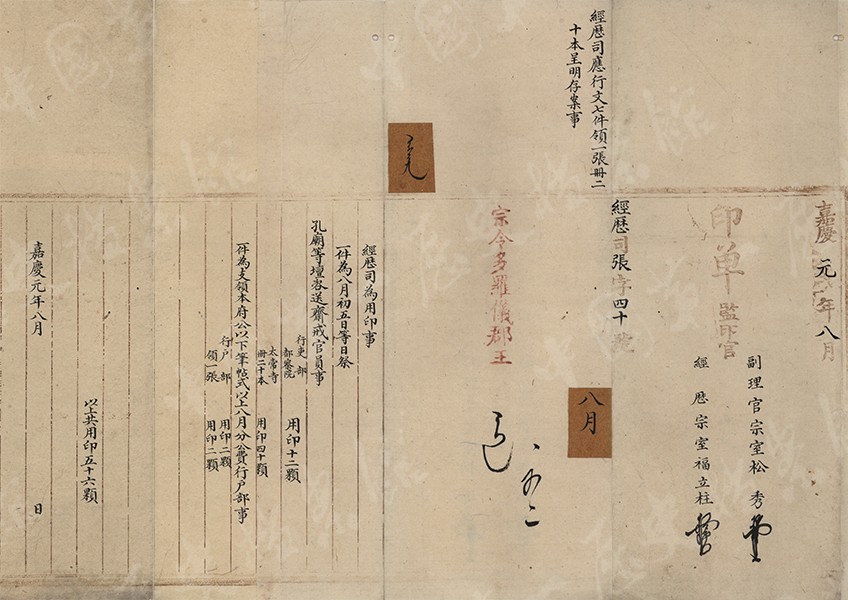 嘉慶元年八月
副理官宗室松秀
印單
監印官
經歷宗室福立柱
經歷司張字四十號
經歷司應行文七件領一張冊二
十本呈明存案事
八月
宗令多羅儀郡王
經歷司為用印事
一件為八月初五日等日祭
孔廟等壇咨送齋戒官員事
行吏部
都察院
用印十二顆
太常寺
冊二十本
用印四十顆
一件為支領本府公以下筆帖式以上八月分公費行戶部事
行戶部
用印二顆
領一張
用印二顆
以上共用印五十六顆
嘉慶元年八月
日